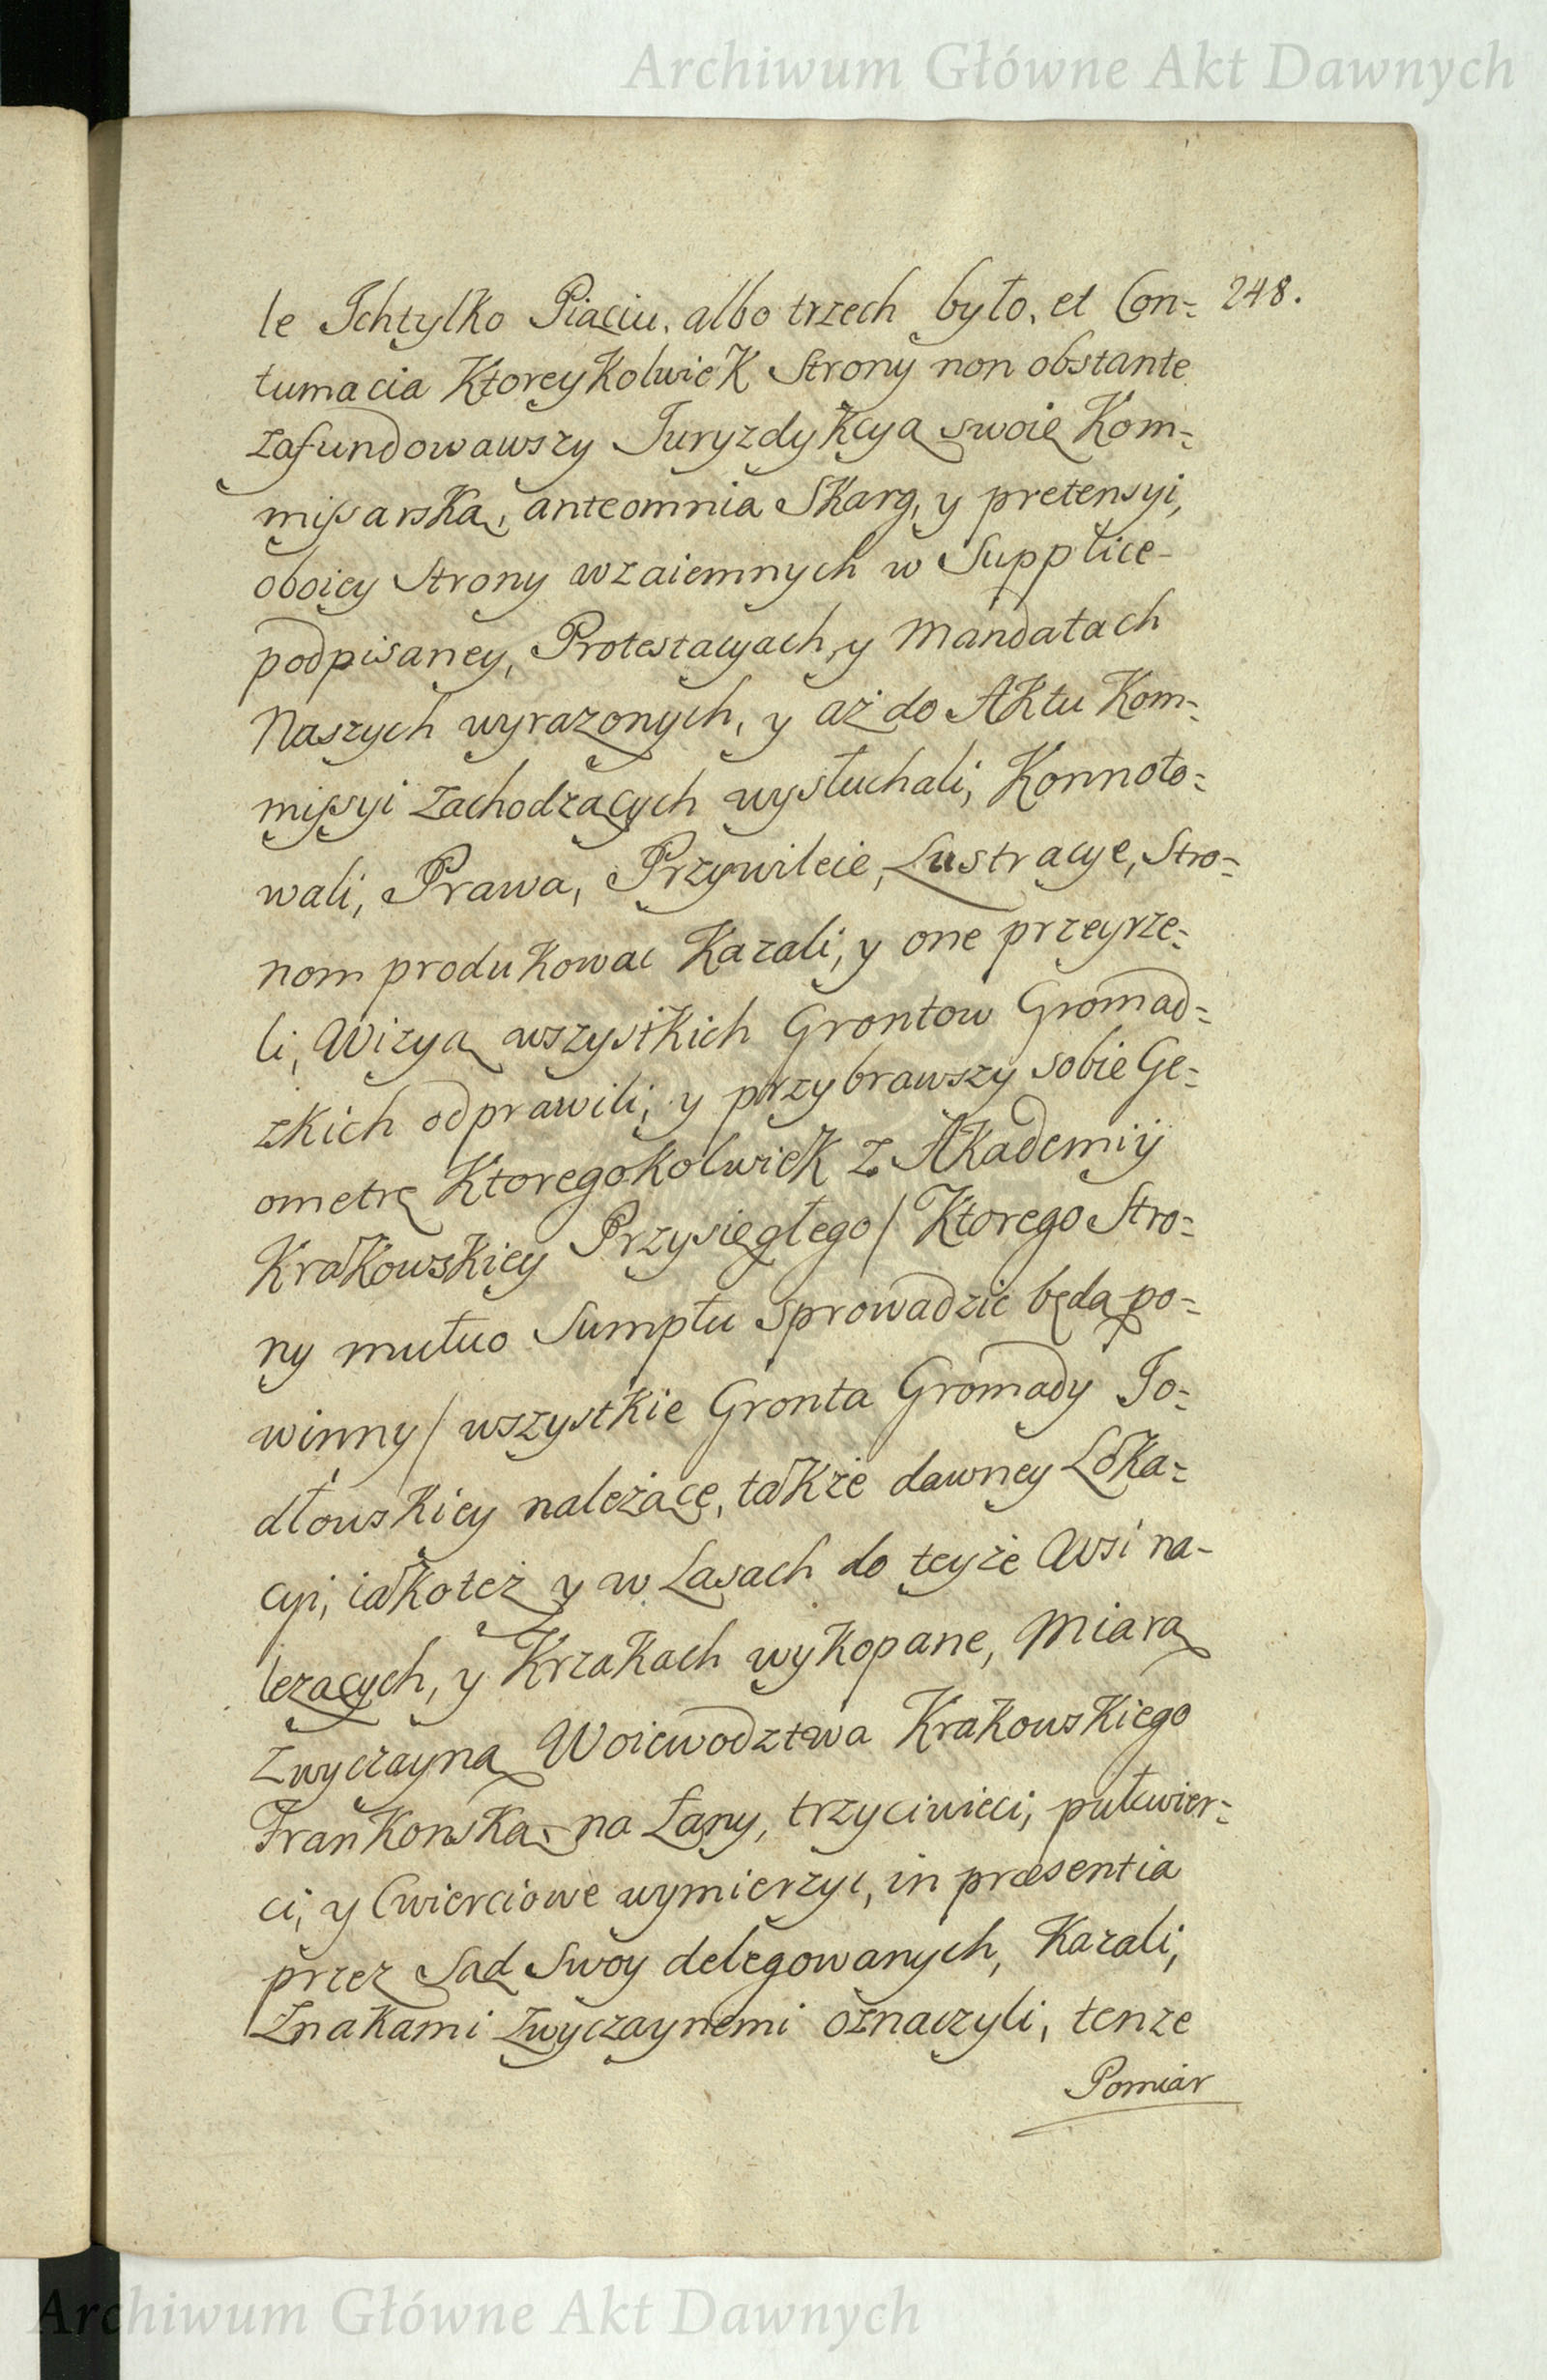 Archiwum Główne Akt Dawnych
248.
le Ichtylko Piąciu, albo trzech było, et Con-
tumacia Ktoreykolwiek Strony non obstante
zafundowawszy Juryzdykcyą swoię Kom-
missarską, anteomnia Skarg, y pretensyi,
oboiey Strony wzaiemnych w Supplice
podpisaney, Protestacyach, y Mandatach
Naszych wyrazonych, y aż do Aktu Kom-
missyi zachodzących wysłuchali, Konnoto-
wali, Prawa, Przywileie, Lustracye, Stro-
nom produkowac Kazali, y one przeyrze-
li, Wizyą wszystkich Grontow Gromad-
zkich odprawili, y przybrawszy sobie Ge-
ometrę Ktoregokolwiek z Akademiy
Krakowskiey Przysięgłego / Ktorego Stro-
ny mutuo Sumptu sprowadzić będą po-
winny / wszystkie Gronta Gromady Jo-
dłowskiey należącę, także dawney Loka-
cyi, iakoteż y w Lasach do teyże Wsi na-
lezących, y Krzakach wykopane, Miarą
Zwyczayną Woiewodztwa Krakowskiego
Frankonską na Łany, trzyciwieci, pułcwier-
ci, y Cwierciowe wymierzyc, in præsentia
przez Sąd Swoy delegowanych, Kazali,
Znakami Zwyczaynemi oznaczyli, tenze
Pomiar
Archiwum Główne Akt Dawnych